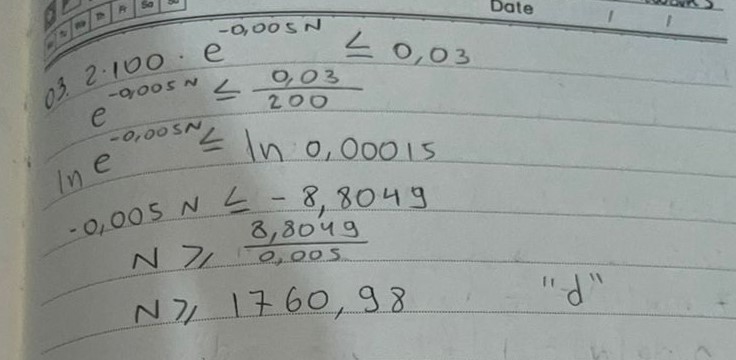 Date
03. 2·100·e^-0,005N ≤ 0,03
e^-0,005N ≤ 0,03/200
ln e^-0,005N ≤ ln 0,00015
-0,005 N ≤ -8,8049
N ≥ 8,8049/0,005
N ≥ 1760,98 "d"